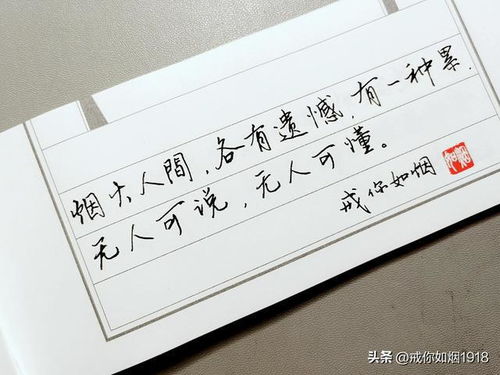 烟火人間，各有遗憾，有一种累，
无人可说，无人可懂。
戒你如烟
头条 @戒你如烟1918